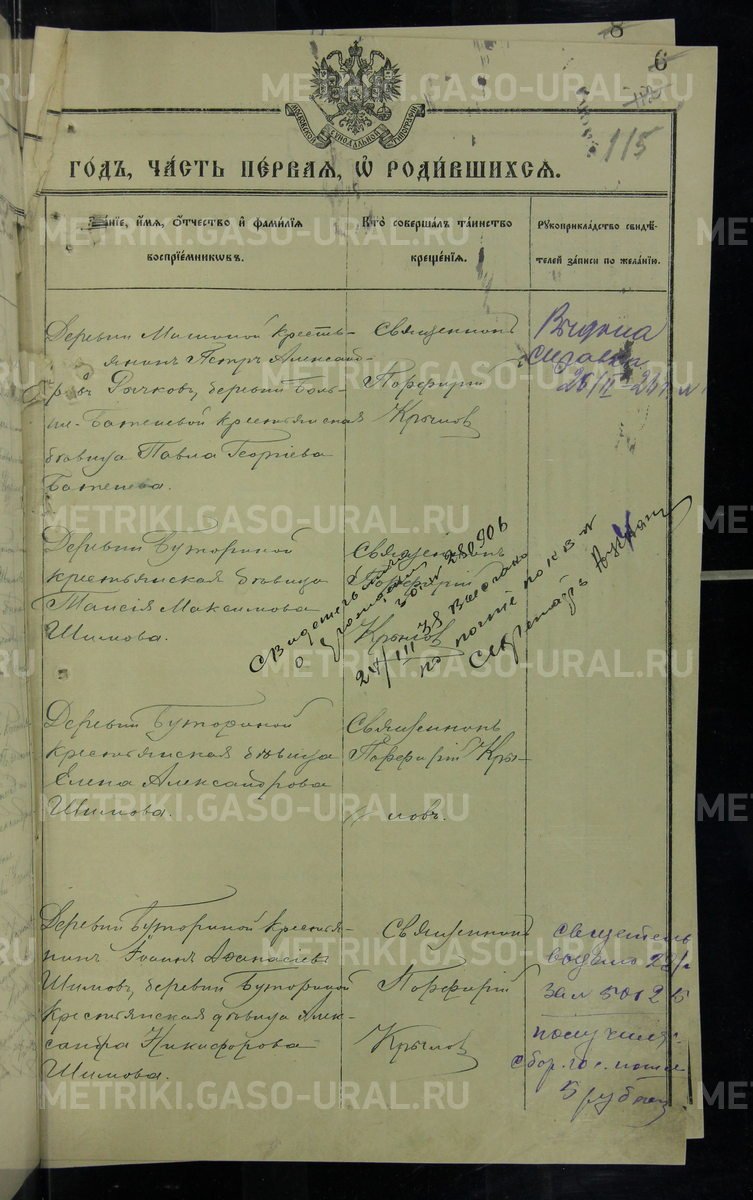 8
6
115
МОСКОВСКОЙ СѴНОДАЛЬНОЙ ТИПОГРАФІИ
ГОДЪ, ЧАСТЬ ПЕРВАЯ, Ѡ РОДИВШИХСЯ.
Званіе, имя, отчество и фамилія воспріемниковъ.
Кто совершалъ таинство крещенія.
Рукоприкладство свидѣтелей записи по желанію.
кресть-
янинъ Петръ Александ-
ровъ Рычковъ, деревни Боль-
крестьянская
дѣвица Павла Георгіева
Священникъ
Порфирій
Крыловъ
Выдана
справка
Деревни Буториной
крестьянская дѣвица
Таисія Максимова
Шимова.
Священникъ
Порфирій
Крыловъ
Свидетельство
о рождении
Выслано
по почте
Секретарь
Деревни Буториной
крестьянская дѣвица
Елена Александрова
Шимова.
Священникъ
Порфирій Кры-
ловъ.
Деревни Буториной крестья-
нинъ Іоаннъ Аѳанасіевъ
Шимовъ, деревни Буториной
крестьянская дѣвица Алек-
сандра Никифорова
Шимова.
Священникъ
Порфирій
Крыловъ
свидетель
выдано
за № 50125
5 рублей
METRIKI.GASO-URAL.RU